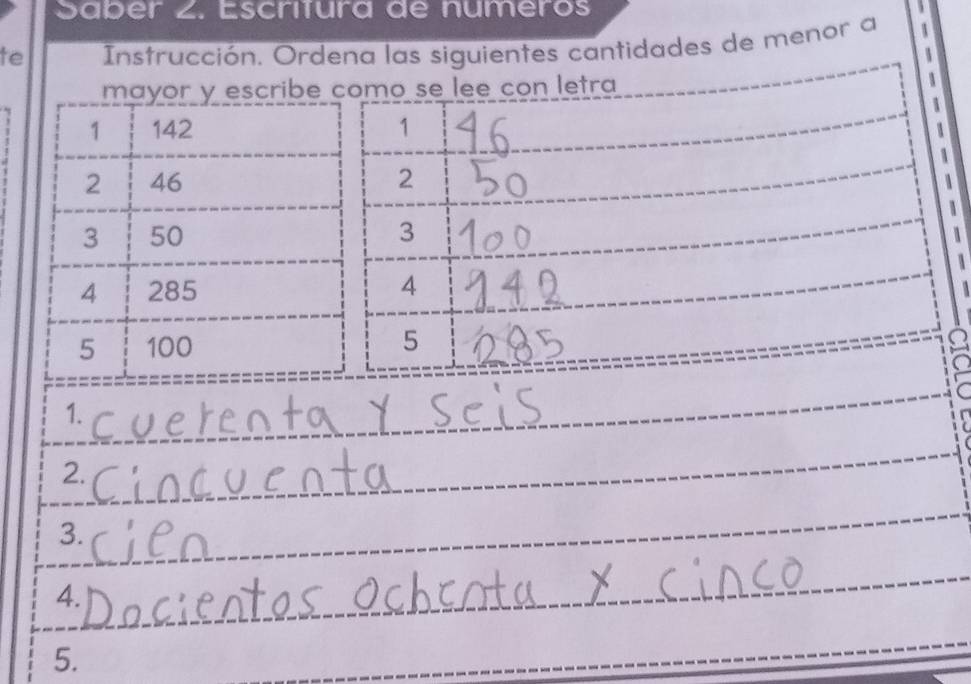 Saber 2. Escritura de números
te
Instrucción. Ordena las siguientes cantidades de menor a
mayor y escribe como se lee con letra
1 142 1 46
2 46 2 50
3 50 3 100
4 285 4 142
5 100 5 285
1. cuerenta y seis
2. cincuenta
3. cien
4. Docientos ochenta y cinco
5.
CICLO